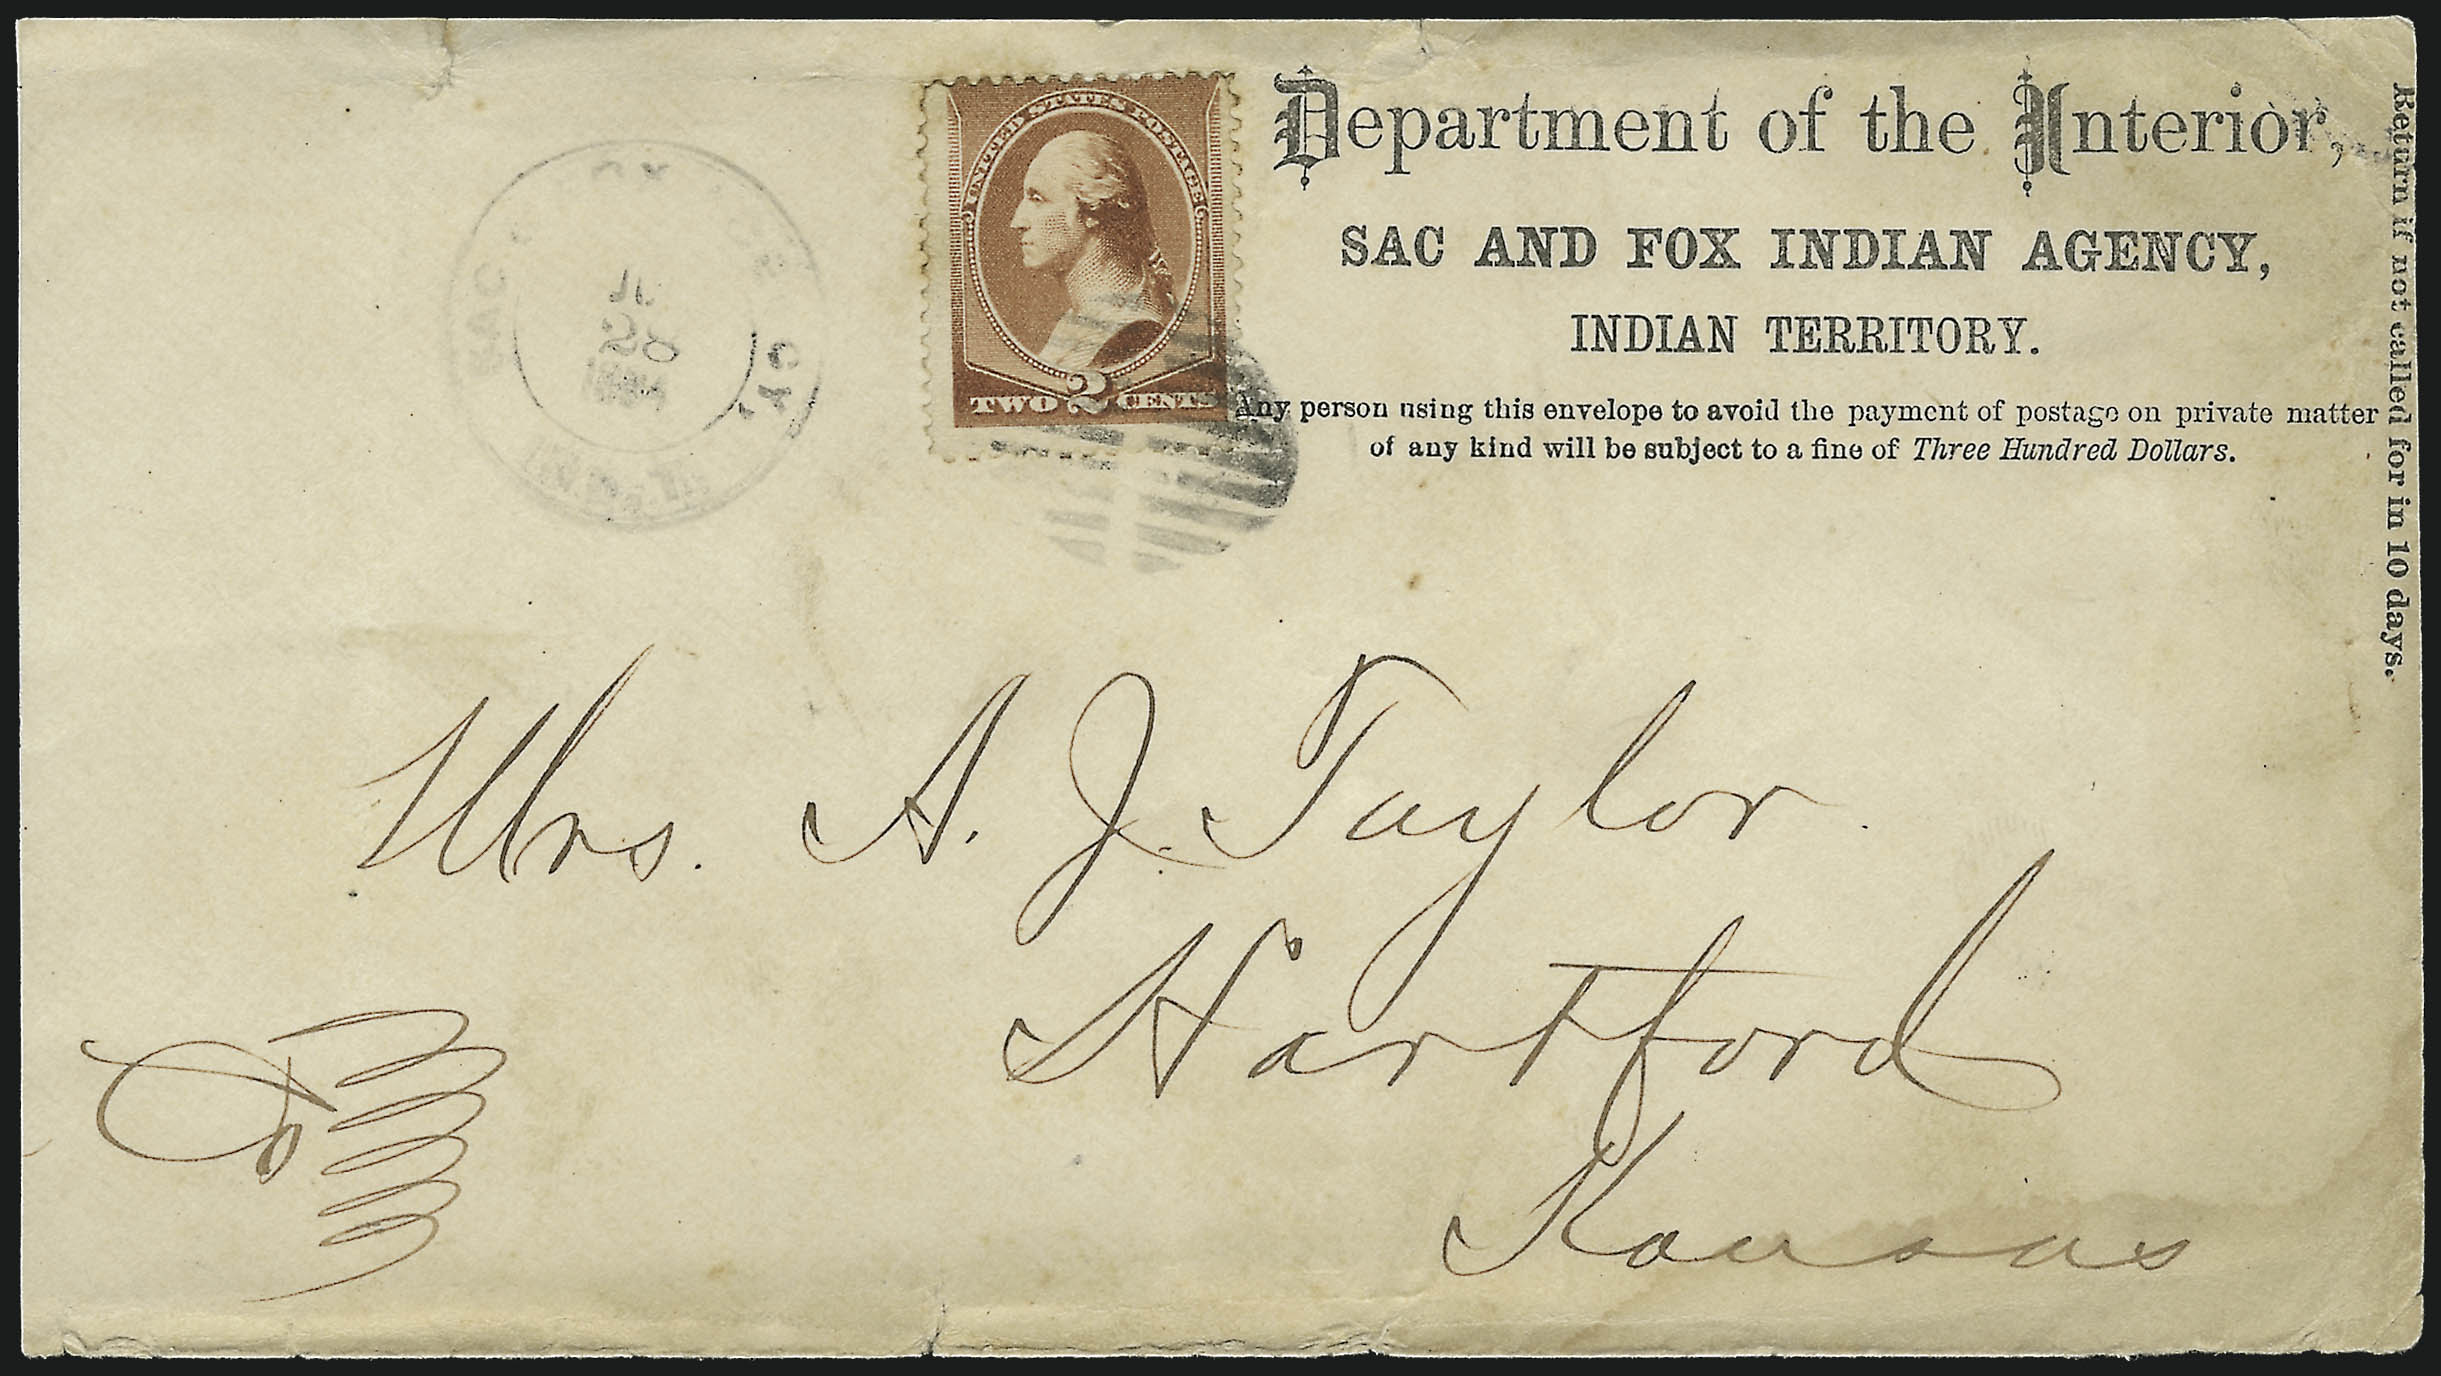 UNITED STATES POSTAGE
2
TWO CENTS
Department of the Interior,
SAC AND FOX INDIAN AGENCY,
INDIAN TERRITORY.
Any person using this envelope to avoid the payment of postage on private matter
of any kind will be subject to a fine of Three Hundred Dollars.
Return if not called for in 10 days.
Mrs. A. J. Taylor
Hartford
Kansas